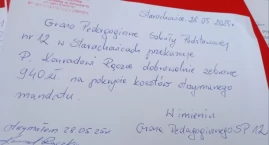 Starachowice, 28.05.2025r.
Grono Pedagogiczne Szkoły Podstawowej
nr 12 w Starachowicach przekazuje
P. Konradowi Rączce dobrowolnie zebrane
940 zł. na pokrycie kosztów otrzymanego
mandatu
W imieniu
Grona Pedagogicznego SP 12
Otrzymałem 28.05.25r